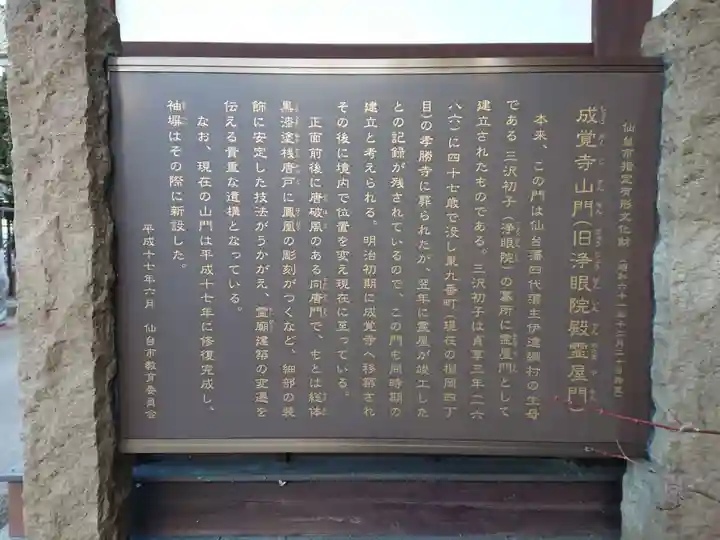 仙台市指定有形文化財（昭和六十一年十二月二十日指定）
成覚寺山門（旧浄眼院殿霊屋門）
本来、この門は仙台藩四代藩主伊達綱村の生母
である三沢初子（浄眼院）の墓所に霊屋門として
建立されたものである。三沢初子は貞享三年（一六
八六）に四十七歳で没し東九番町（現在の榴岡四丁
目）の孝勝寺に葬られたが、翌年に霊屋が竣工した
との記録が残されているので、この門も同時期の
建立と考えられる。明治初期に成覚寺へ移築され
その後に境内で位置を変え現在に至っている。
正面前後に唐破風のある向唐門で、もとは総体
黒漆塗桟唐戸に鳳凰の彫刻がつくなど、細部の装
飾に安定した技法がうかがえ、霊廟建築の変遷を
伝える貴重な遺構となっている。
なお、現在の山門は平成十七年に修復完成し、
袖塀はその際に新設した。
平成十七年六月　仙台市教育委員会